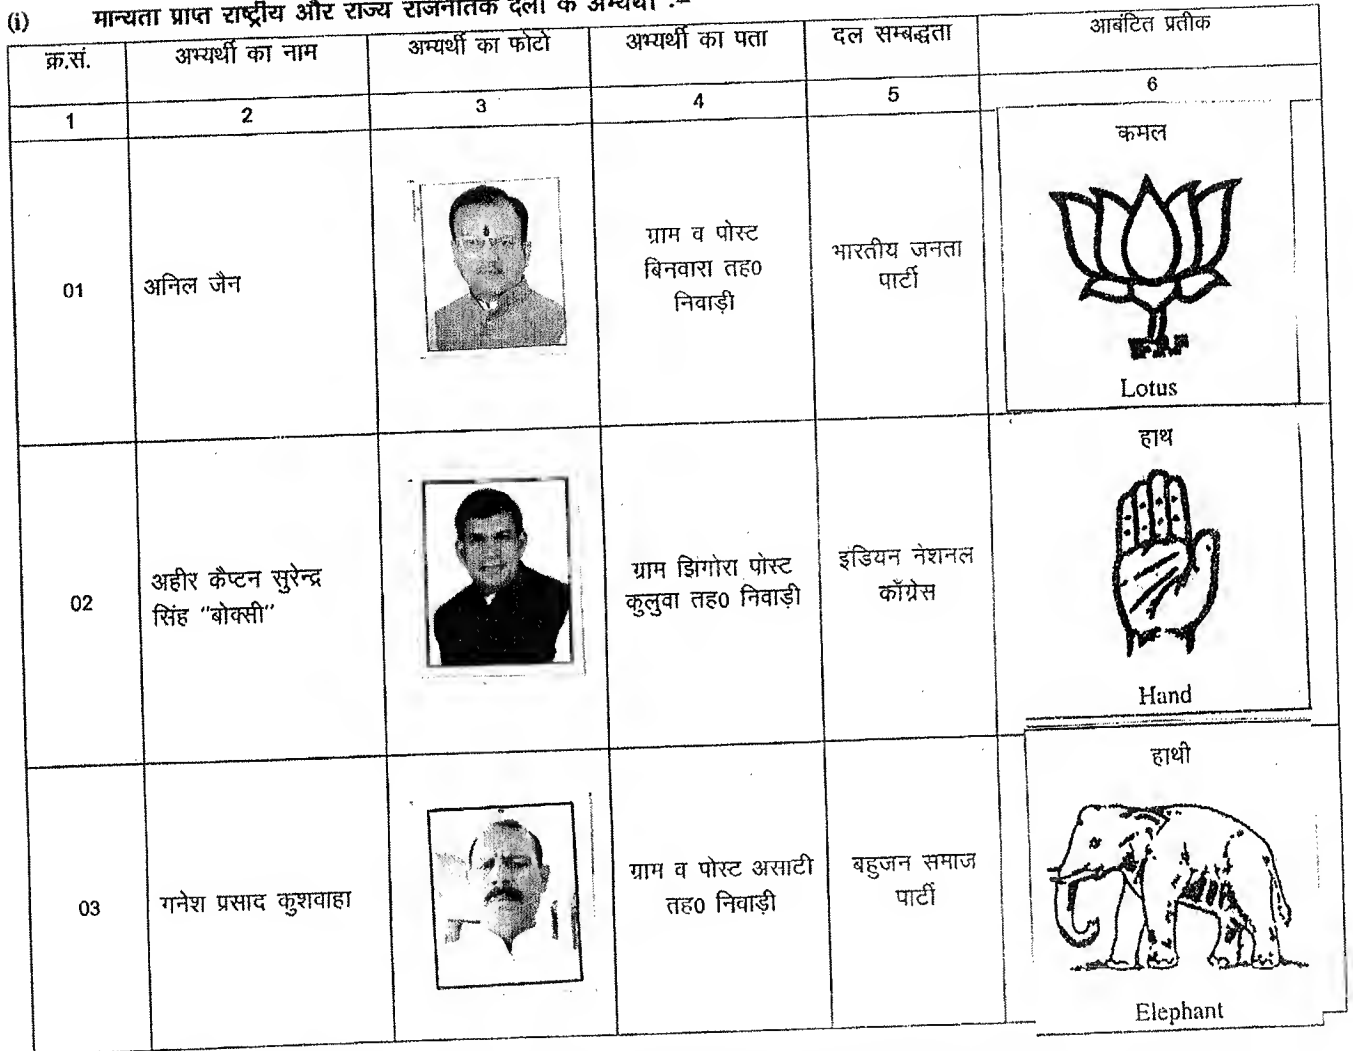 (i) मान्यता प्राप्त राष्ट्रीय और राज्य राजनैतिक दलों के अभ्यर्थी :–
क्र.सं. अभ्यर्थी का नाम अभ्यर्थी का फोटो अभ्यर्थी का पता दल सम्बद्धता आबंटित प्रतीक
1 2 3 4 5 6
01
अनिल जैन
ग्राम व पोस्ट
बिनवारा तह0
निवाड़ी
भारतीय जनता
पार्टी
कमल
Lotus
02
अहीर कैप्टन सुरेन्द्र
सिंह "बोक्सी"
ग्राम झिंगोरा पोस्ट
कुलुवा तह0 निवाड़ी
इंडियन नेशनल
कॉंग्रेस
हाथ
Hand
03
गनेश प्रसाद कुशवाहा
ग्राम व पोस्ट असाटी
तह0 निवाड़ी
बहुजन समाज
पार्टी
हाथी
Elephant